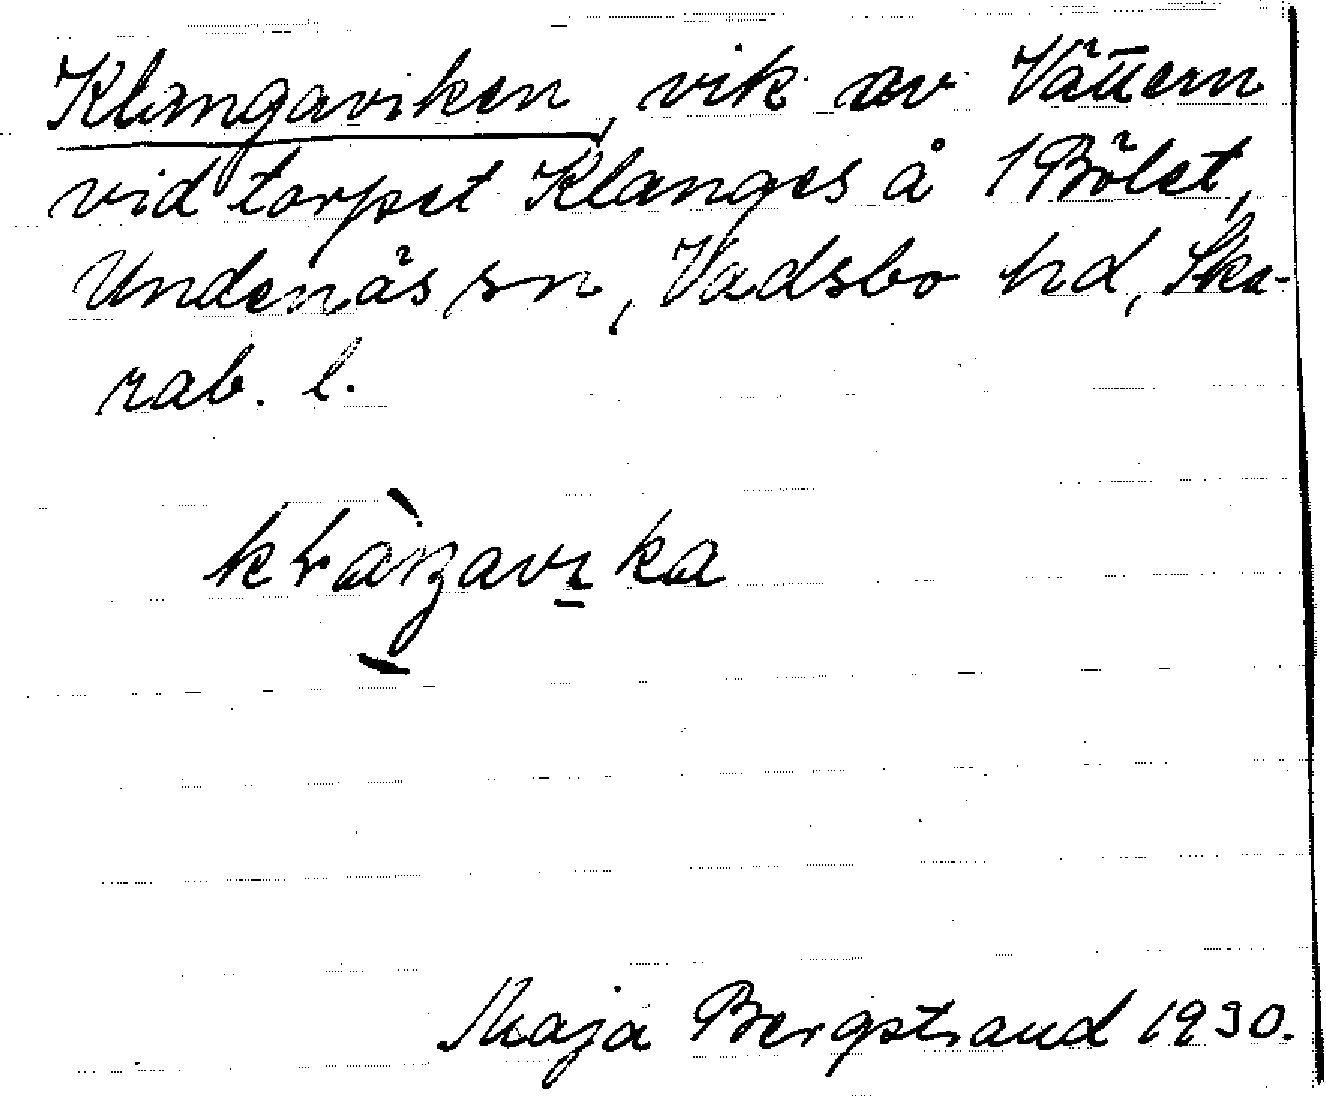 Klangaviken, vik av Vättern
vid torpet Klanges å 1 Bölet,
Undenäs sn, Vadsbo hd, Ska-
rab. l.
Maja Bergstrand 1930.